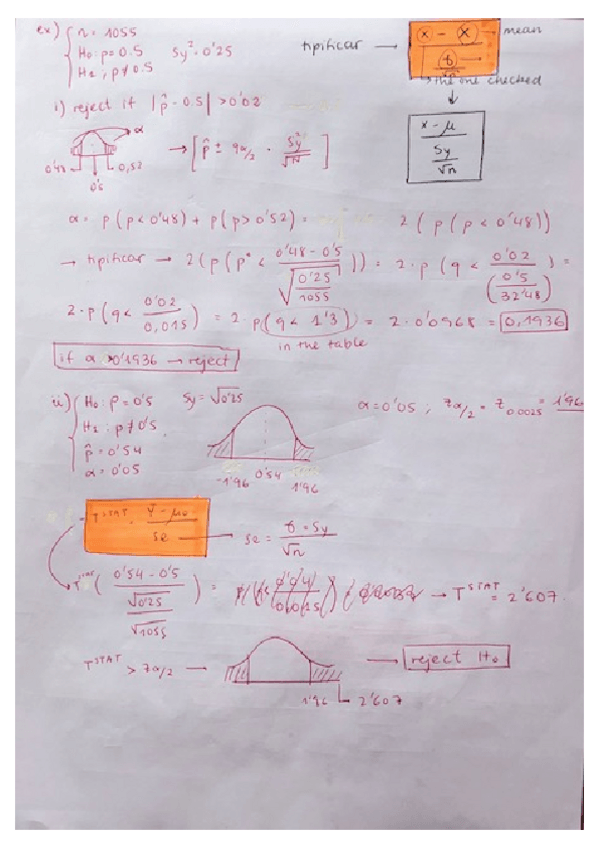 ex) n = 1055
H₀: p = 0.5 Sy² = 0'25
H₁: p ≠ 0.5
tipificar → x - x̄ → mean
σ
→ the one checked
x - μ
Sy
√n
i) reject if |p̂ - 0.5| > 0'02
α
0'48 0,52
0'5
→ [p̂ ± qα/2 · Sy/√N]
α = p(p < 0'48) + p(p > 0'52) = 2(p(p < 0'48))
→ tipificar → 2(p(p* < (0'48 - 0'5)/√(0'25/1055))) = 2·p(q < 0'02/(0'5/32'48)) =
2·p(q < 0'02/0,015) = 2·p(q < 1'3) = 2·0'0968 = 0,1936
in the table
if α > 0'1936 → reject
ii) H₀: p = 0'5 Sy = √0'25 α = 0'05 ; zα/2 = z0.0025 = 1'96
H₁: p ≠ 0'5
p̂ = 0'54
α = 0'05
-1'96 0'54 1'96
TSTAT = (Ȳ - μ₀)/se → se = σ = Sy/√n
Tstat (0'54 - 0'5)/(√0'25/√1055) = → TSTAT = 2'607
TSTAT > zα/2 → → reject H₀
1'96 → 2'607